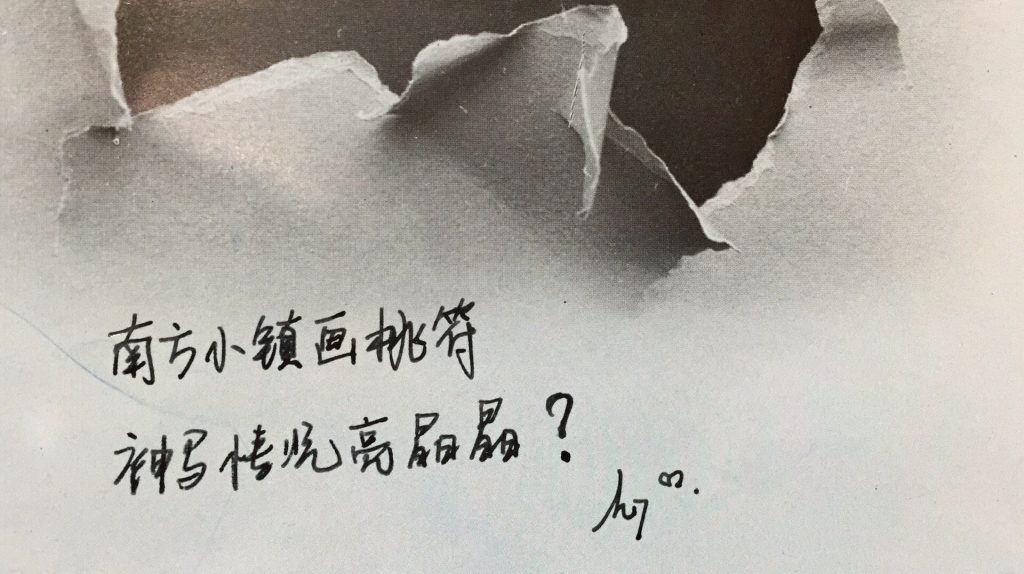 南方小镇画桃符
神写情况亮晶晶?